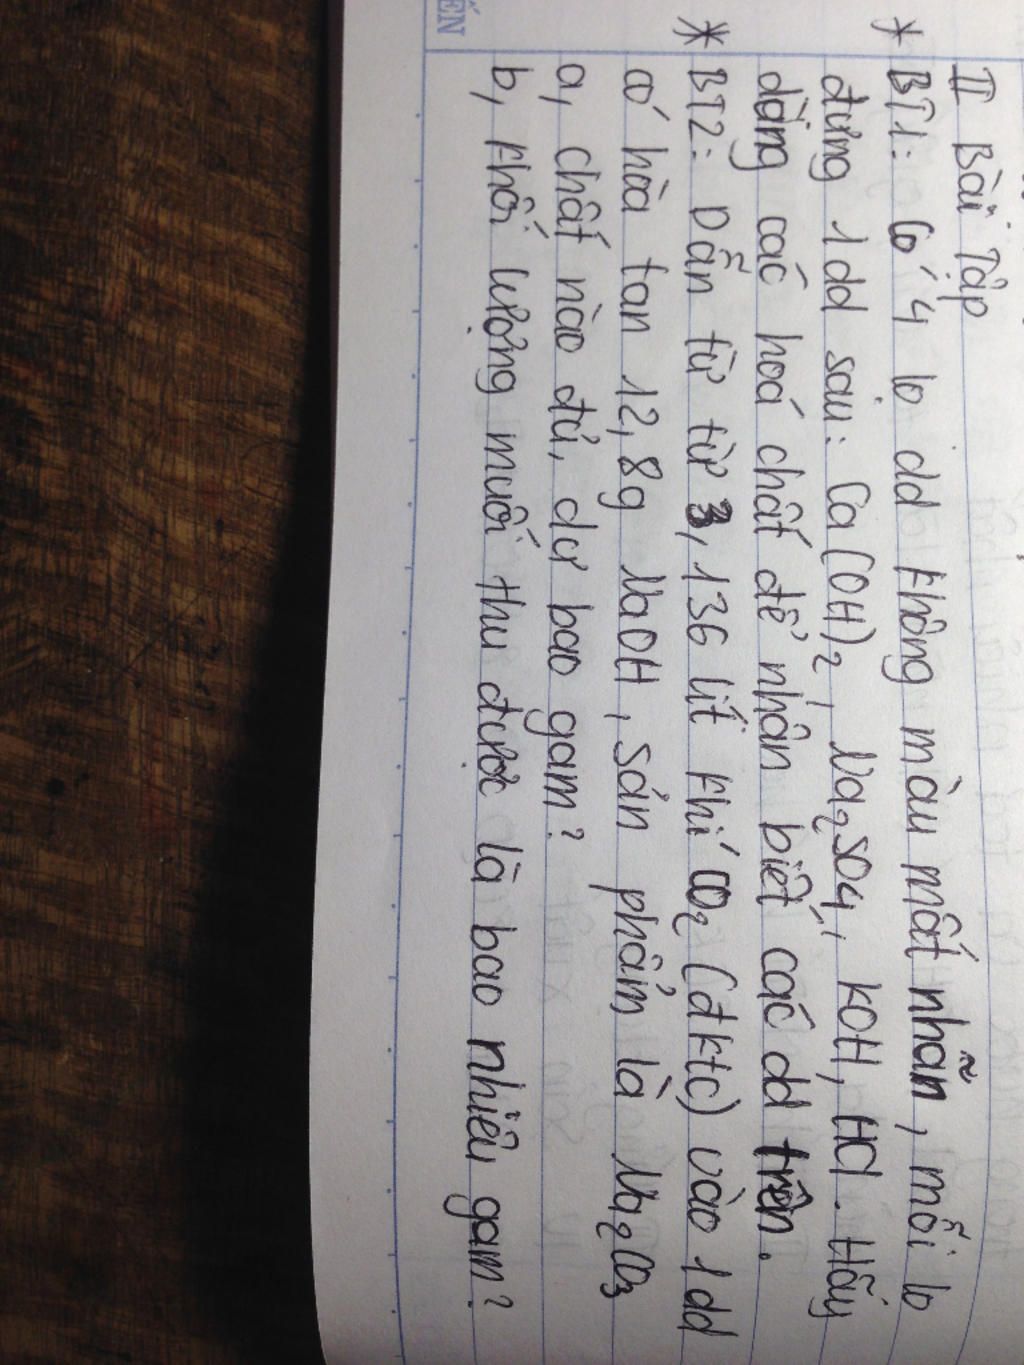 ẾN
II Bài Tập
* BT1: Có 4 lọ dd không màu mất nhãn, mỗi lọ
đựng 1dd sau: Ca(OH)2, Na2SO4, KOH, HCl. Hãy
dùng các hoá chất để nhận biết các dd trên.
* BT2: Dẫn từ từ 3,136 lít khí CO2 (đktc) vào 1dd
có hòa tan 12,8g NaOH, sản phẩm là Na2CO3
a, chất nào đủ, dư bao gam?
b, khối lượng muối thu được là bao nhiêu gam?